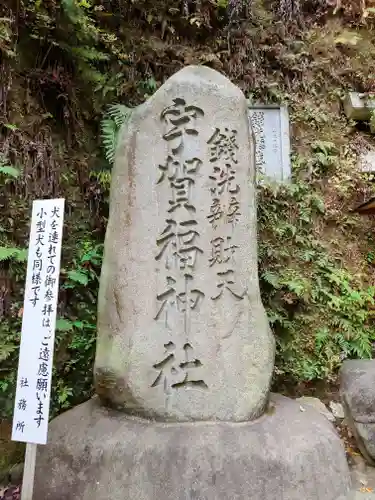 銭洗辨財天
宇賀福神社
犬を連れての御参拝は、ご遠慮願います
小型犬も同様です
社務所